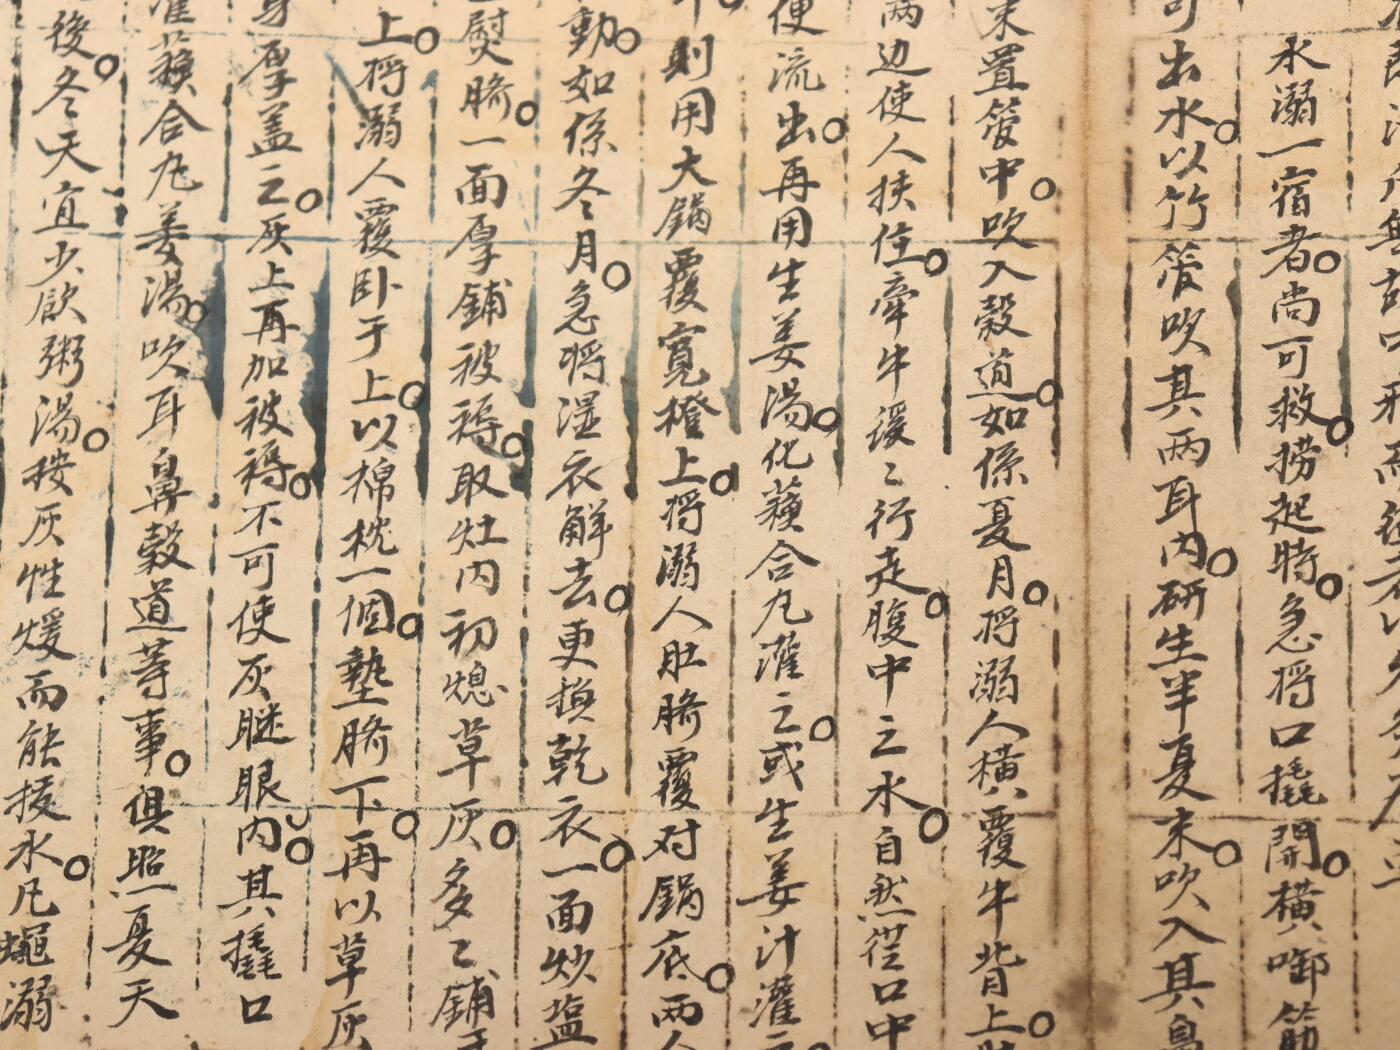 水溺一宿者尚可救捞起時急將口撬開橫啣筯
可出水以竹管吹其两耳內研生半夏末吹入其鼻
末置管中吹入穀道如係夏月將溺人橫覆牛背上
两边使人扶住牵牛缓々行走腹中之水自然從口中
便流出再用生姜湯化蘓合丸灌之或生姜汁灌
則用大鍋覆寬橙上將溺人肚臍覆对鍋底两人
動如係冬月急將湿衣解去更換乾衣一面炒塩
熨臍一面厚鋪被褥取灶内初熄草灰多々鋪于
上將溺人覆卧于上以棉枕一個墊臍下再以草灰
身厚盖之灰上再加被褥不可使灰瞇眼內其撬口
灌蘓合丸姜湯吹耳鼻穀道等事俱照夏天
後冬天宜少飲粥湯按灰性煖而能拔水凡蝇溺